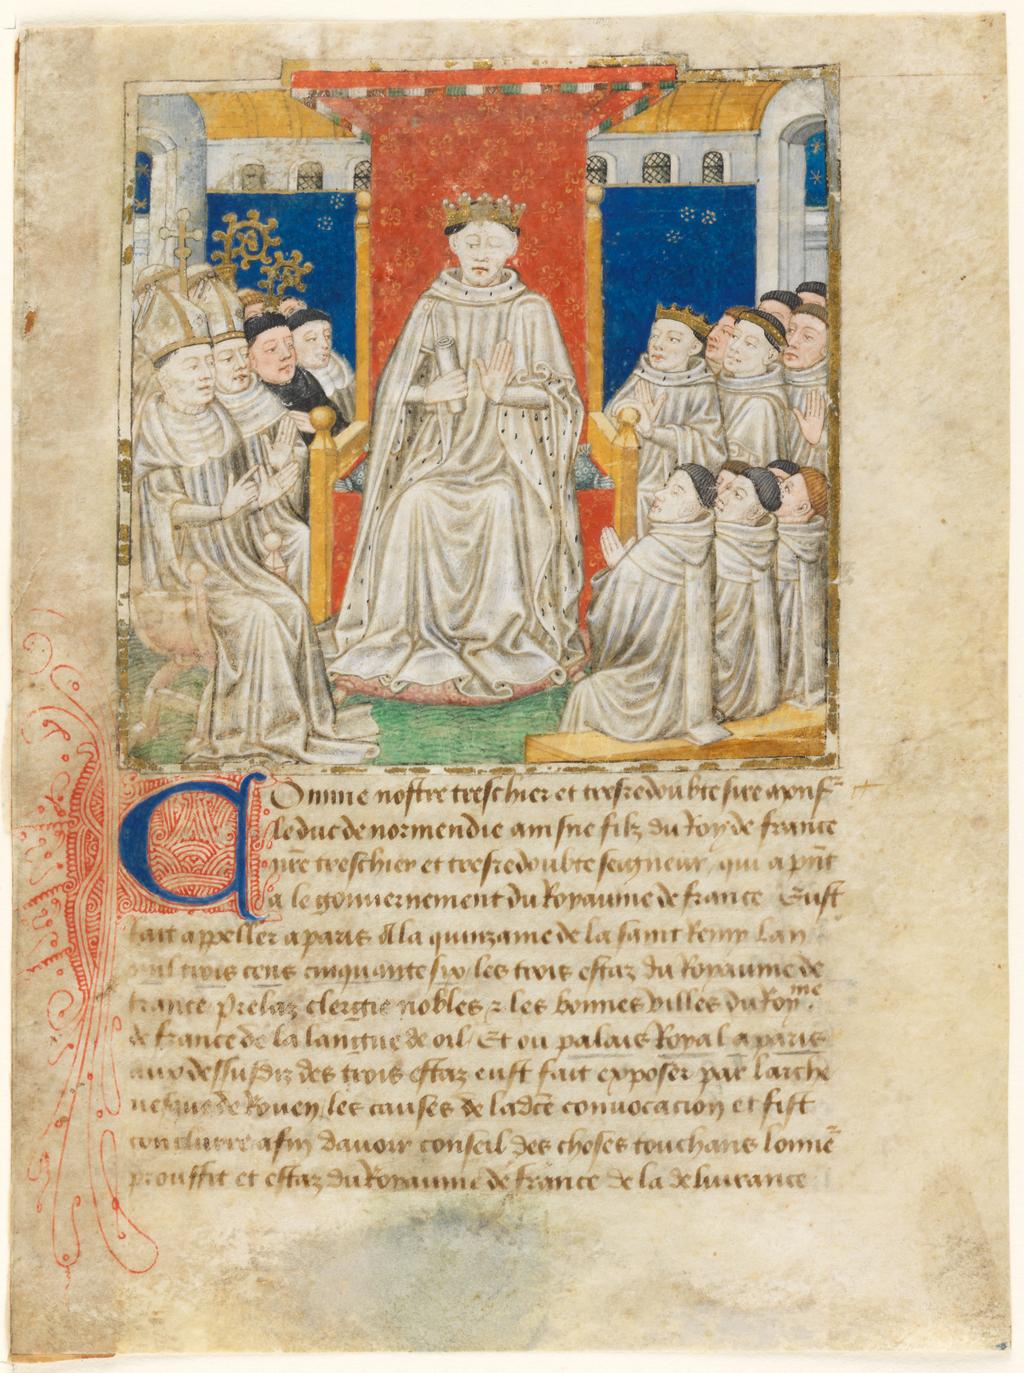 Comme nostre treschier et tresredoubte sire a pn̄s
le duc de normendie ainsne filz du Roy de france
nr̄e treschier et tresredoubte seigneur, qui a pn̄t
a le gouuernement du Royaume de france Eust
fait appeller a paris A la quinzaine de la saint Remy Lan
mil trois cens cinquante six les trois estaz du Royaume de
france Prelaz clergie nobles & les bonnes villes du Royme
de france de la langue de oil, Et ou palais Royal a paris
aux dessusdiz des trois estaz eust fait exposer par larche
uesque de Rouen, les causes de ladc̄e conuocacion et fist
conclurre afin dauoir conseil des choses touchans lonne
prouffit et estaz du Royaume de france de la deliurance